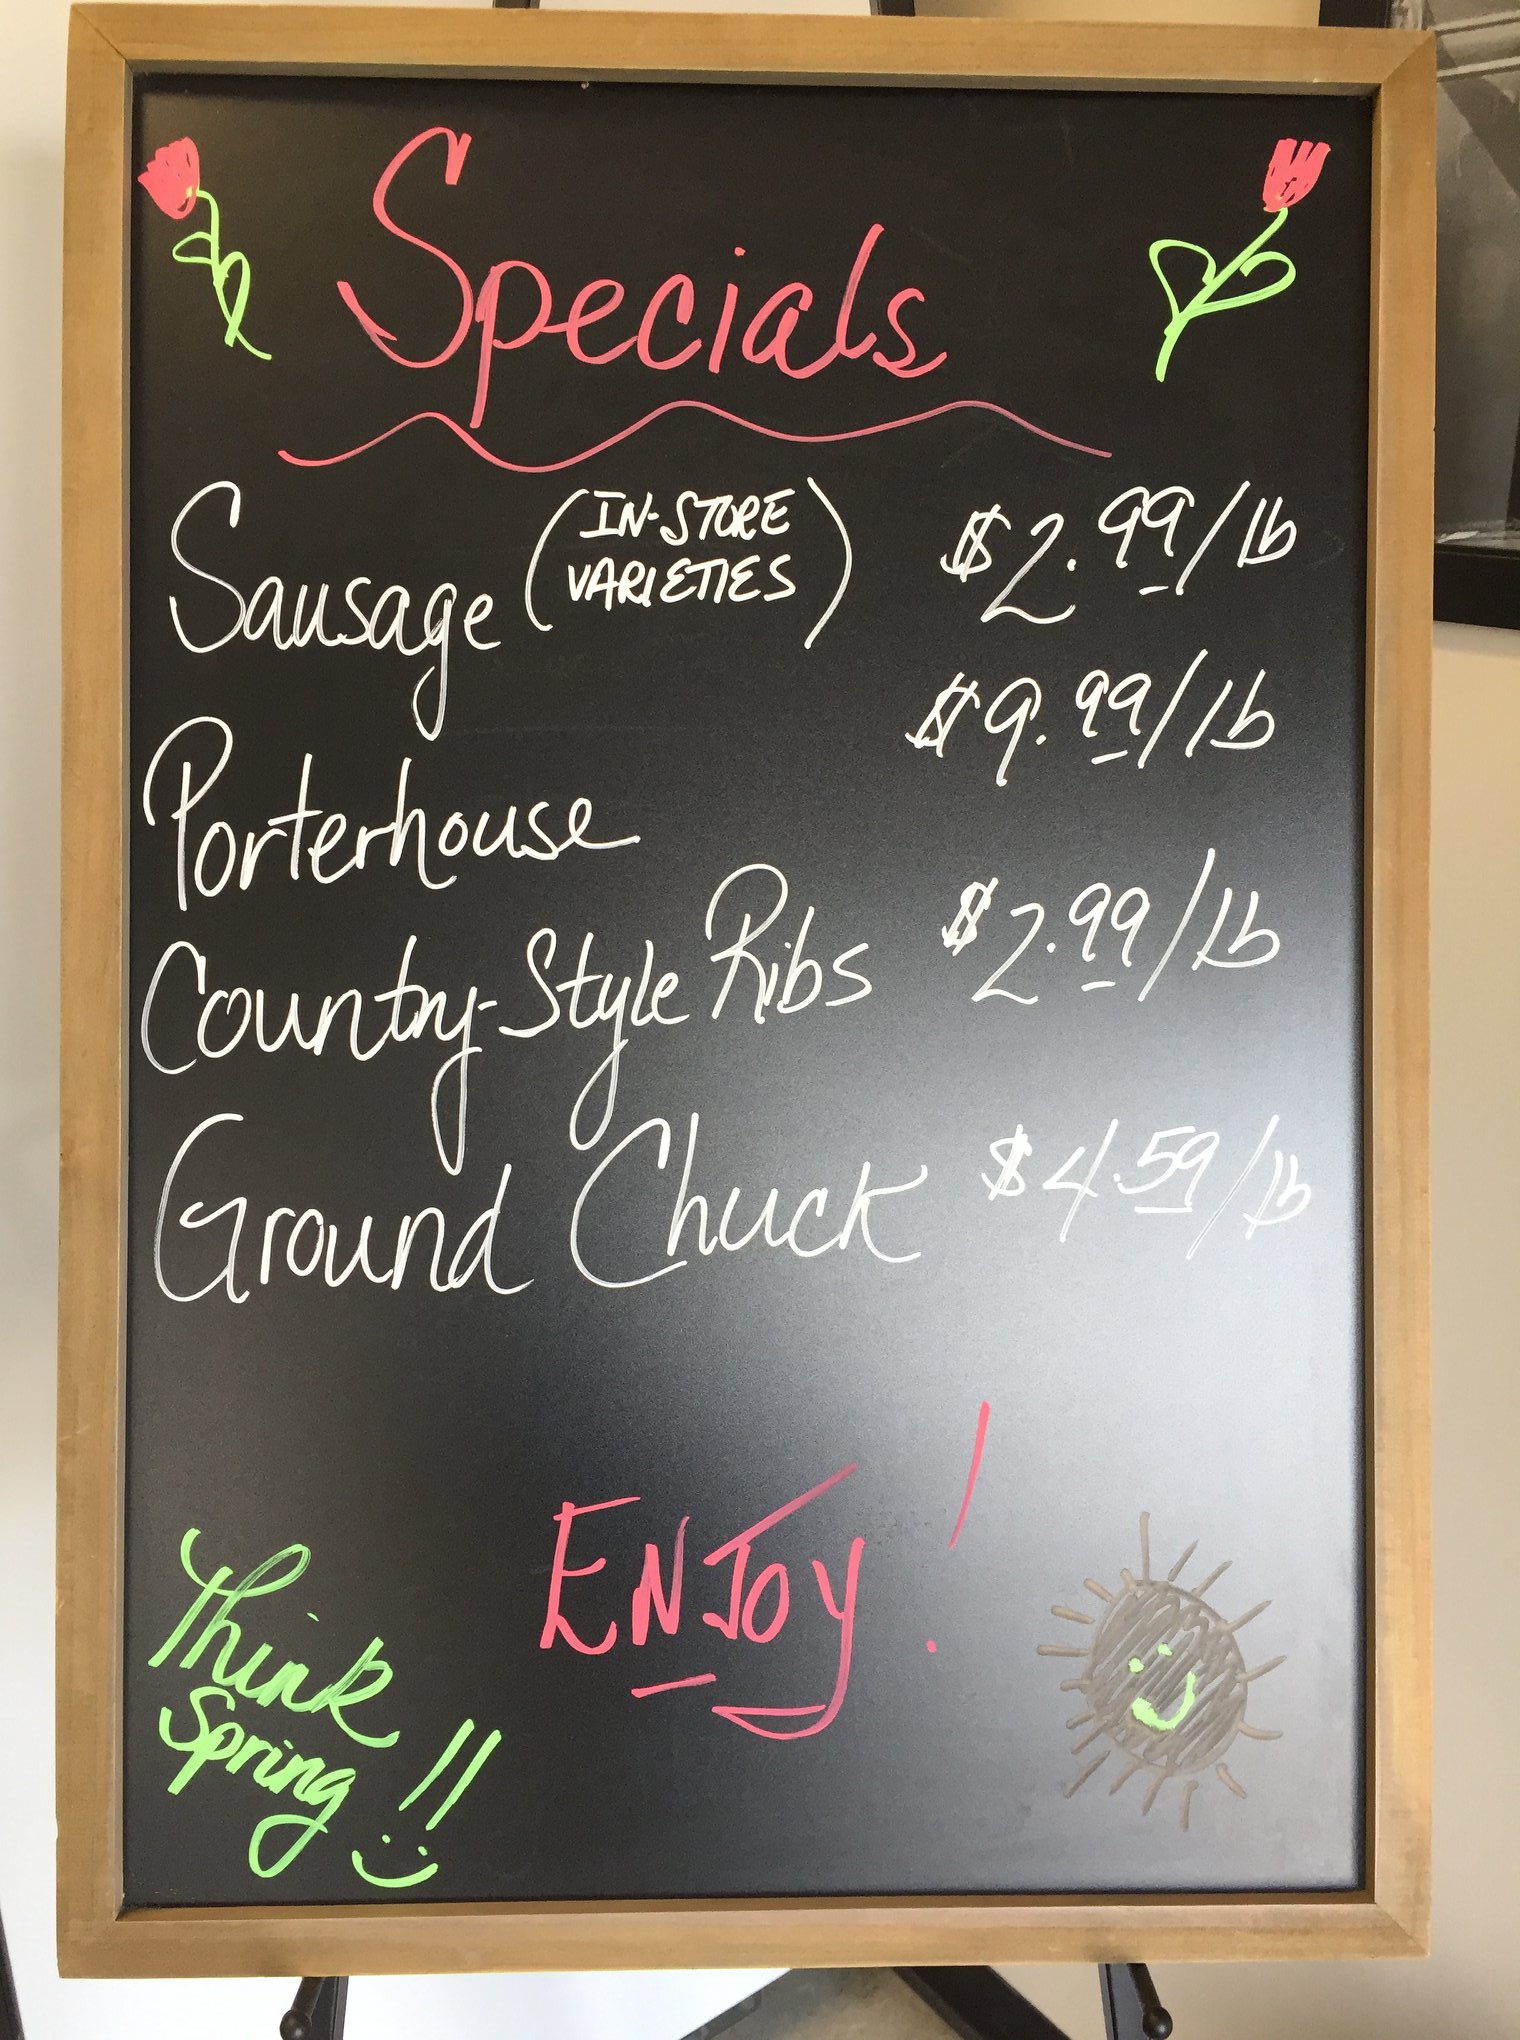 Specials
Sausage (IN-STORE VARIETIES) $2.99/lb
Porterhouse $9.99/lb
Country-Style Ribs $2.99/lb
Ground Chuck $4.59/lb
ENJOY!
Think
Spring!!